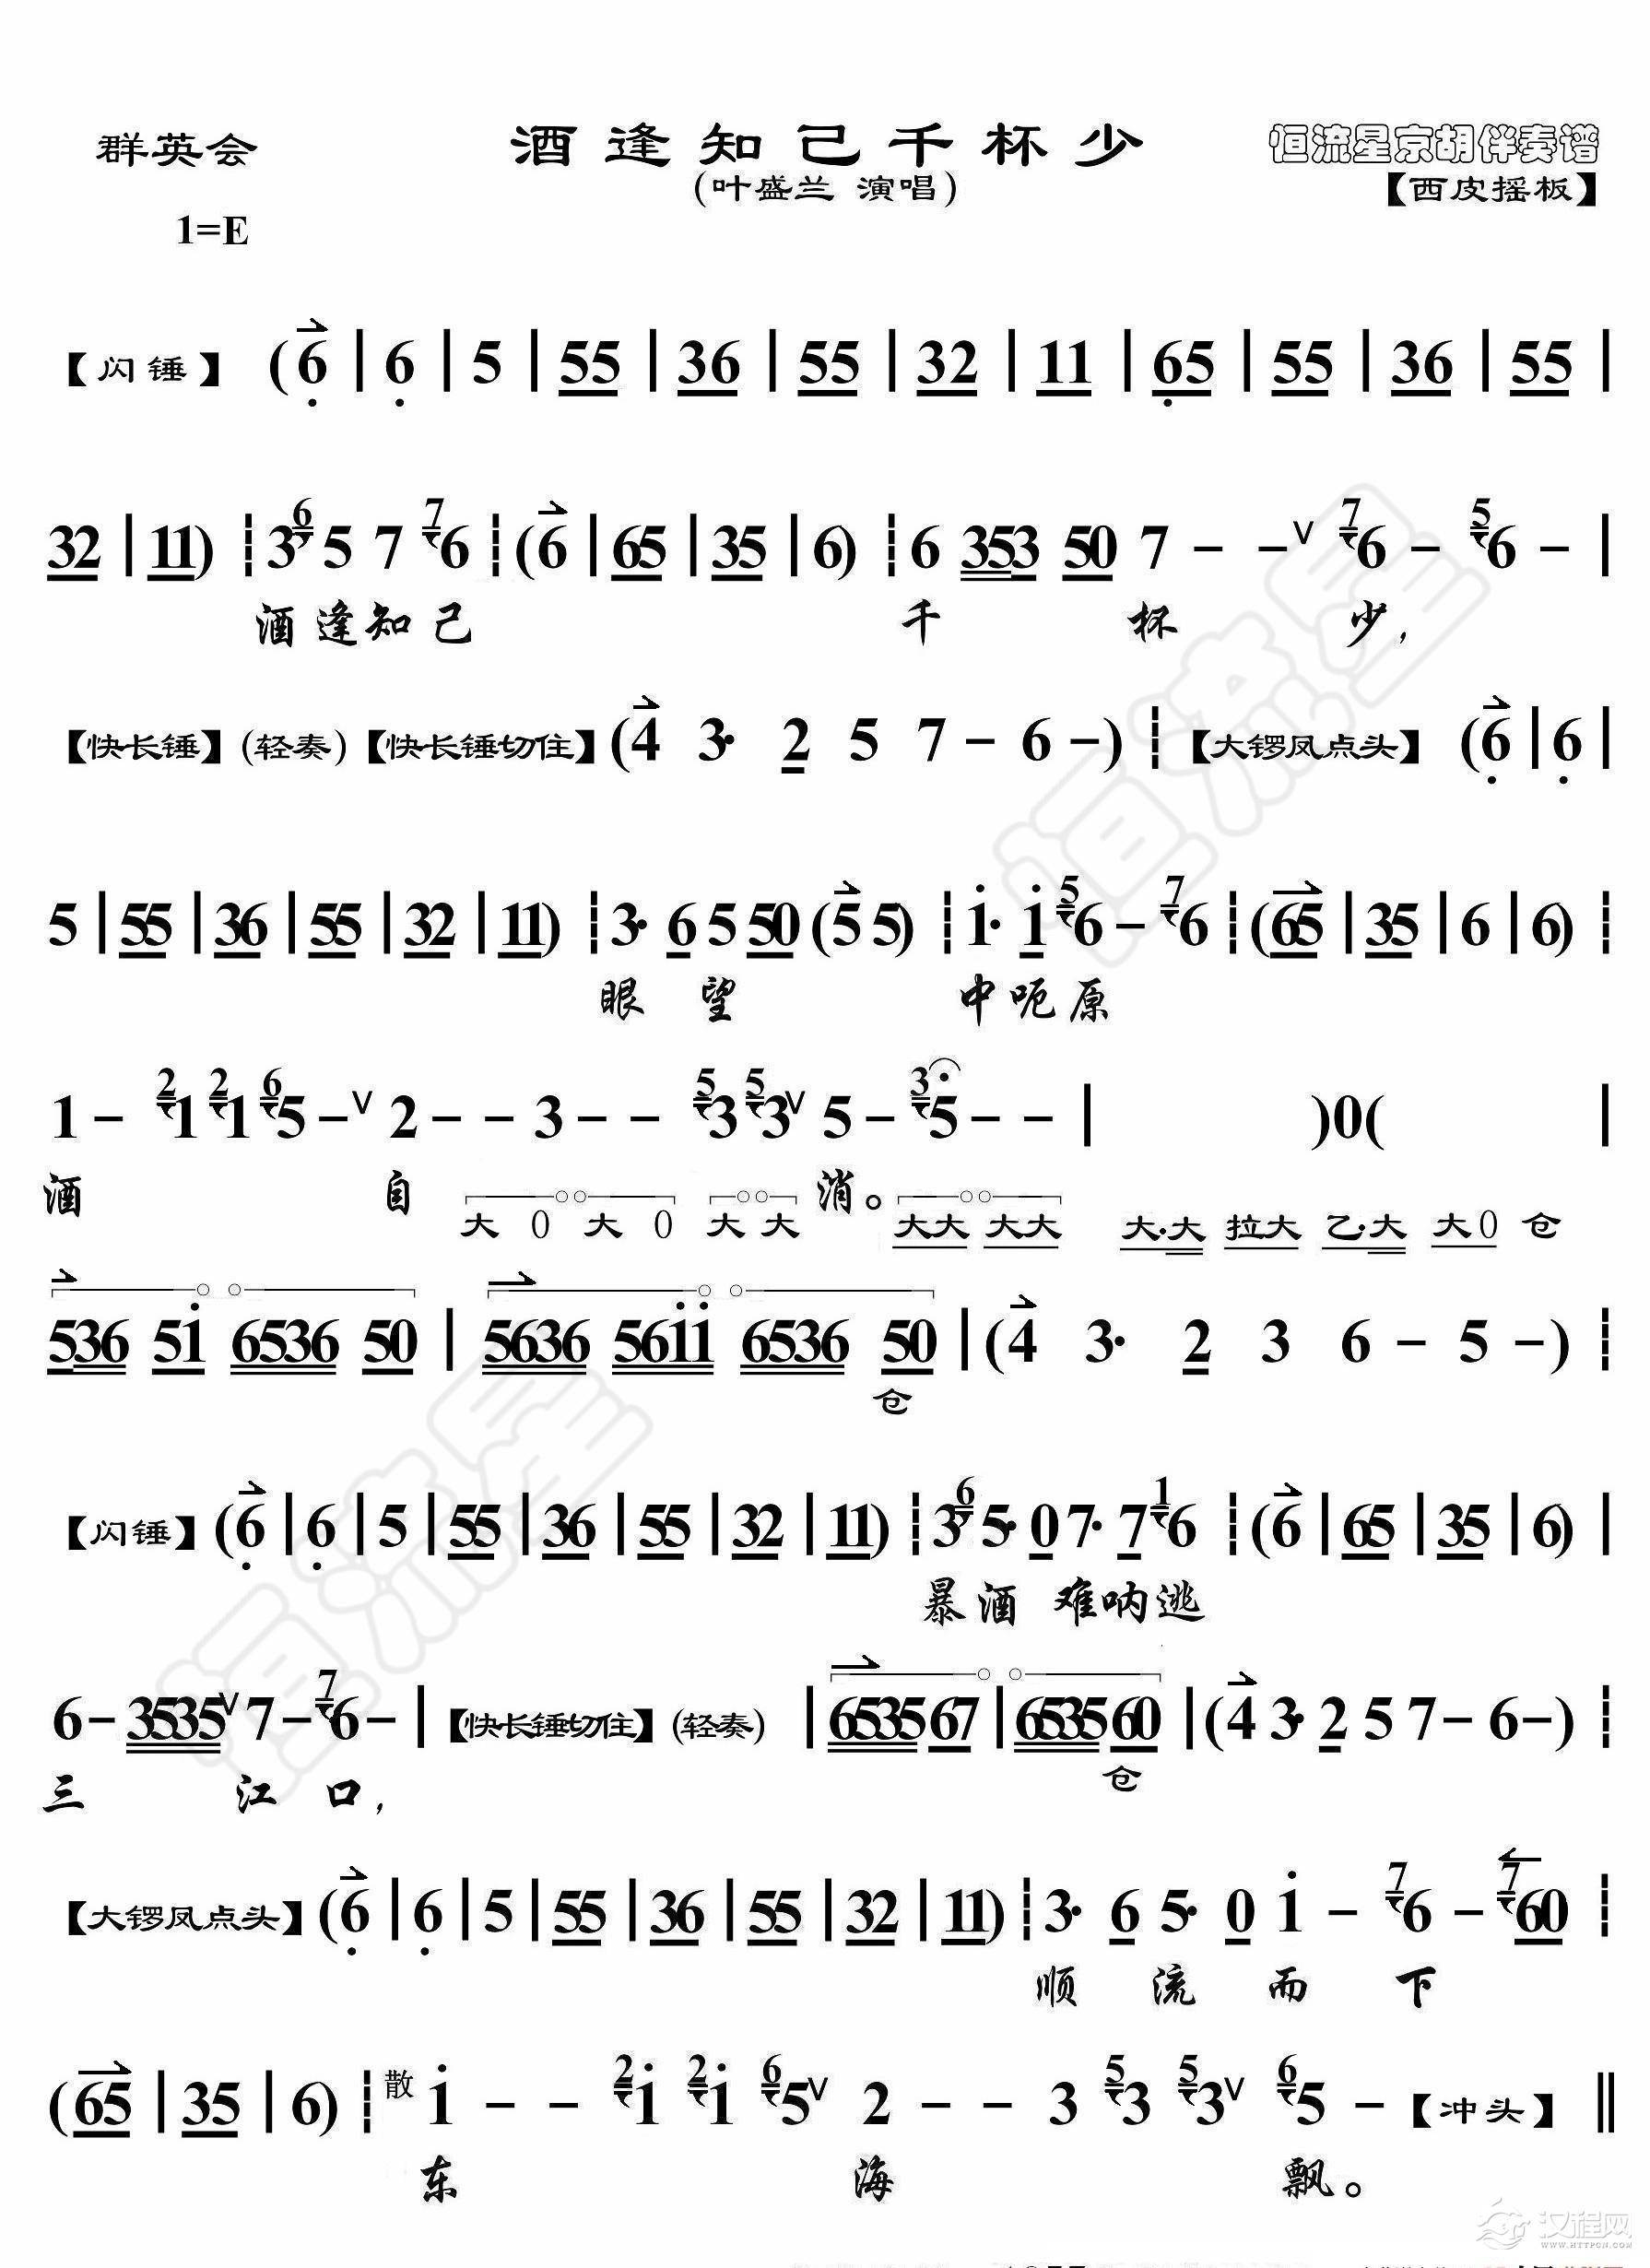 群英会 酒逢知己千杯少 恒流星京胡伴奏谱
(叶盛兰 演唱) 【西皮摇板】
1=E
【闪锤】 (6|6|5|55|36|55|32|11|65|55|36|55|
32|11)┊3 6 5 7 7 6┊(6|65|35|6)┊6 353 50 7 - - ∨ 7 6 - 5 6 -|
酒逢知己 千 杯 少,
【快长锤】(轻奏)【快长锤切住】(4 3· 2 5 7 - 6 -)┊【大锣凤点头】 (6|6|
5|55|36|55|32|11)┊3· 6 5 50 (5 5)┊i· i 5 6 - 7 6┊(65|35|6|6)┊
眼 望 中呃原
1 - 2 1 2 1 6 5 - ∨ 2 - - 3 - - 5 3 5 3 ∨ 5 - 3 5 - -| )0( |
酒 自 消。
大 0 大 0 大 大 大大 大大 大·大 拉大 乙·大 大0 仓
536 5i 6536 50|5636 56ii 6536 50|(4 3· 2 3 6 - 5 -)┊
仓
【闪锤】(6|6|5|55|36|55|32|11)┊3 6 5· 0 7· 7 1 6┊(6|65|35|6)|
暴酒 难呐逃
6 - 3535 ∨ 7 - 7 6 -|【快长锤切住】(轻奏) |653567|653560|(4 3· 2 5 7 - 6 -)┊
仓
三 江 口,
【大锣凤点头】(6|6|5|55|36|55|32|11)┊3· 6 5· 0 i - 7 6 - 7 60┊
顺 流 而 下
(65|35|6)┊散 i - - 2 i 2 i 6 5 ∨ 2 - - 3 5 3 5 3 ∨ 6 5 -【冲头】‖
东 海 飘。
恒流星
恒流星
汉程网
WWW.HTTPCN.COM